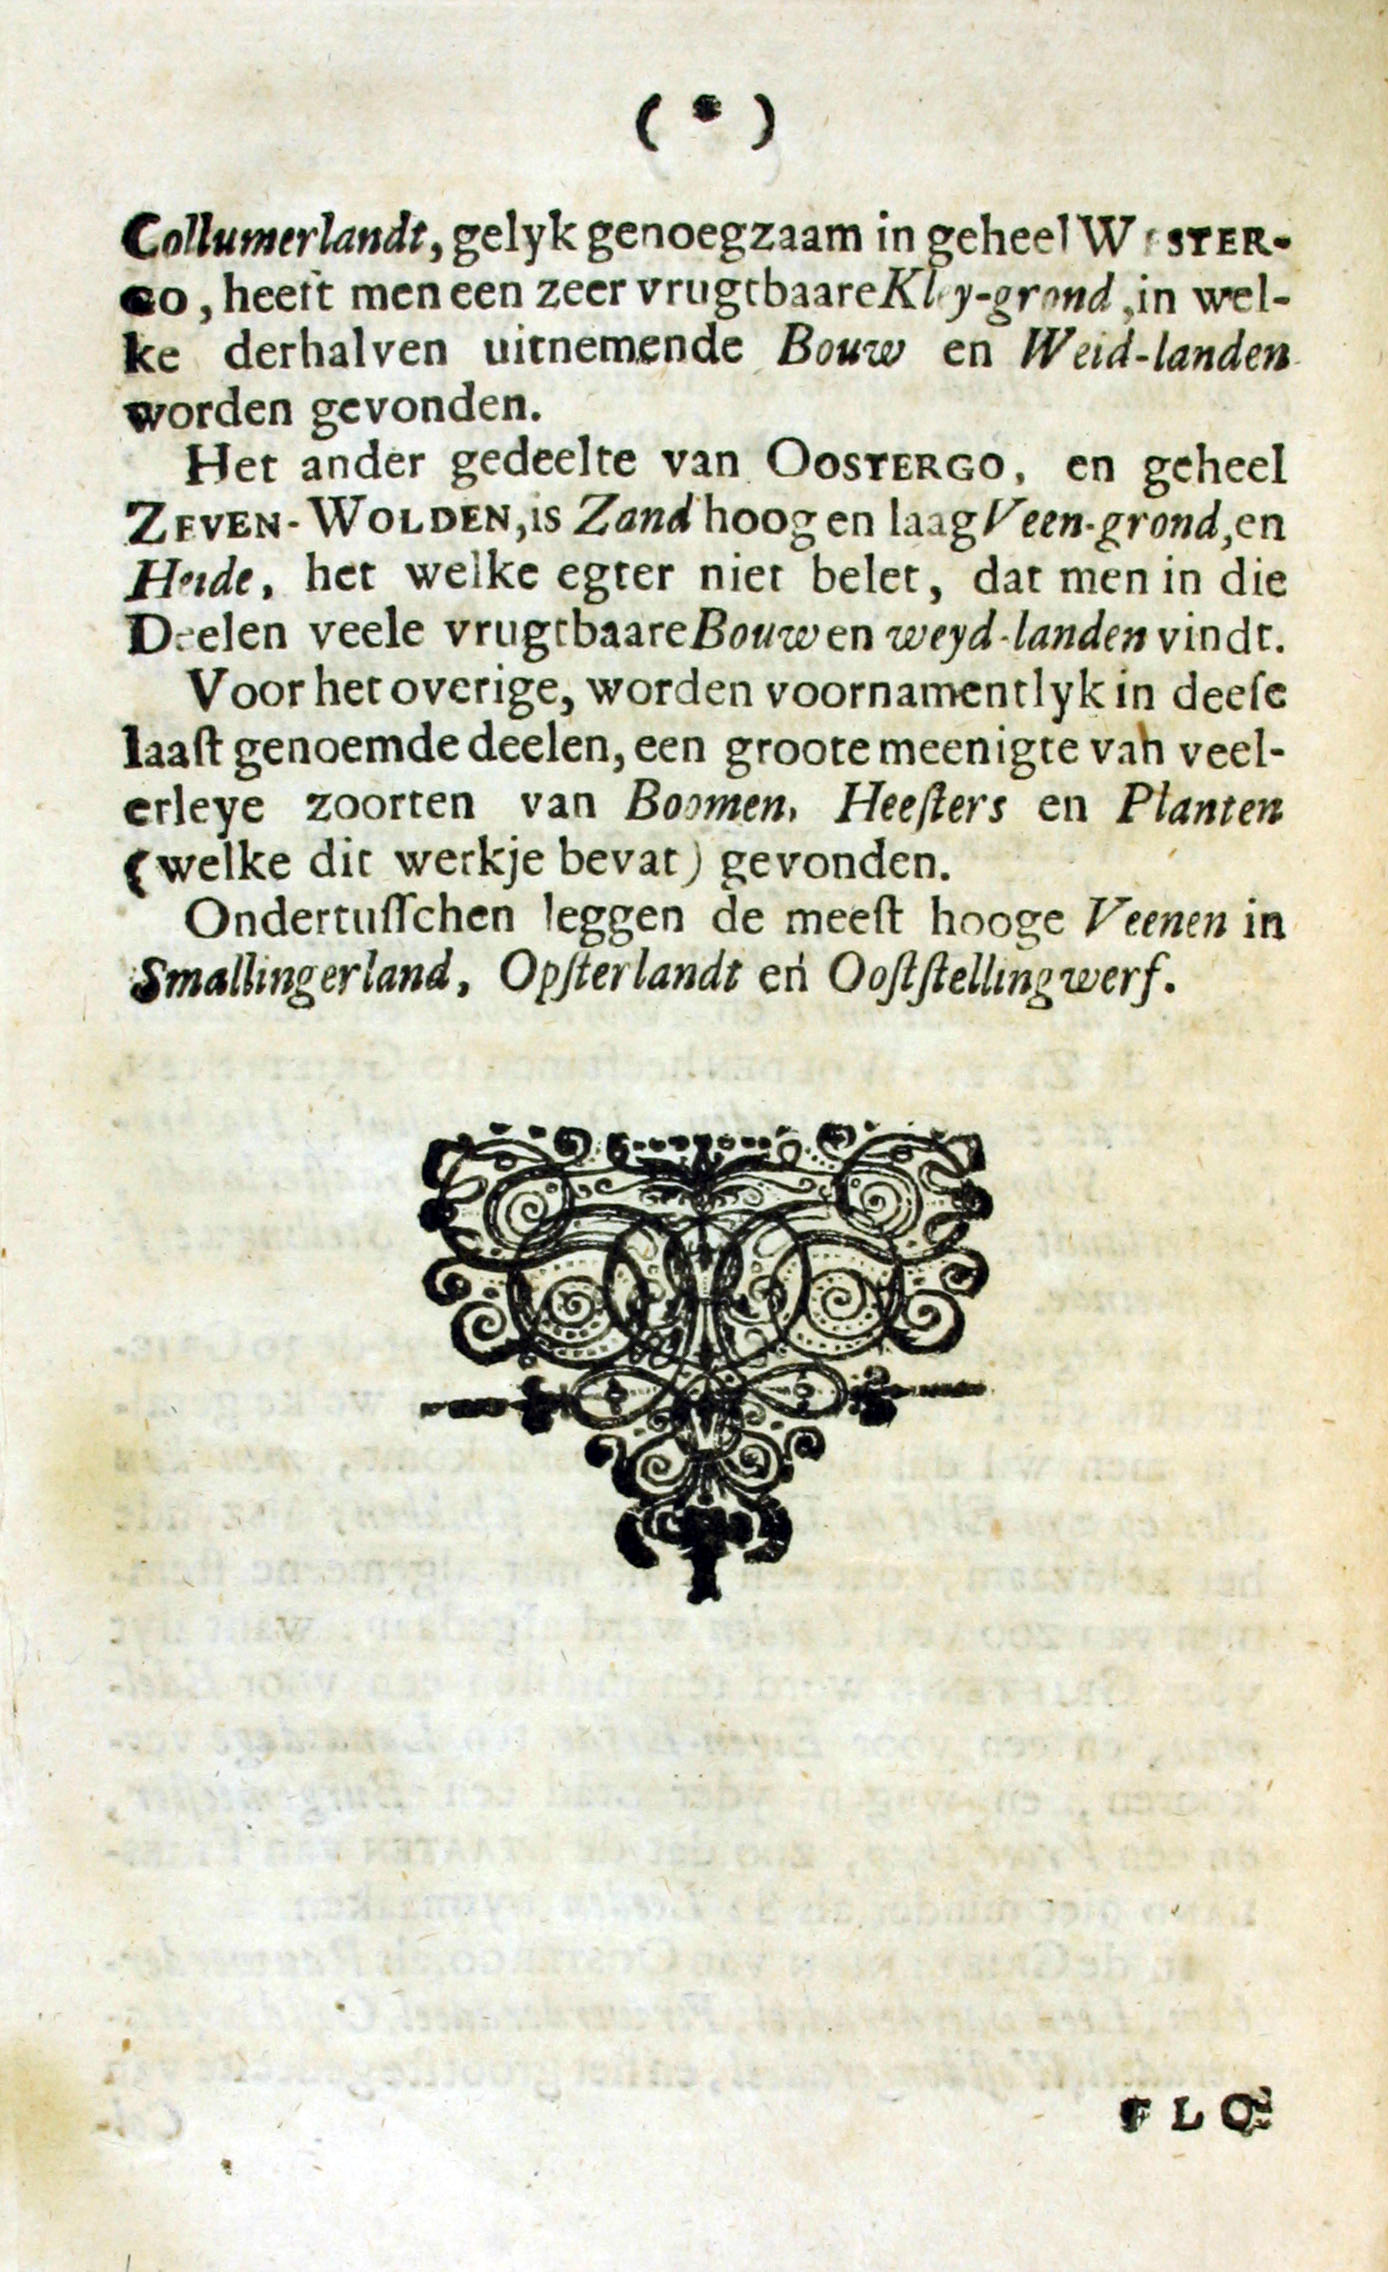 ( * )
Collumerlandt, gelyk genoegzaam in geheel WESTER-
GO, heeft men een zeer vrugtbaare Kley-grond, in wel-
ke derhalven uitnemende Bouw en Weid-landen
worden gevonden.
Het ander gedeelte van OOSTERGO, en geheel
ZEVEN-WOLDEN, is Zand hoog en laag Veen-grond, en
Heide, het welke egter niet belet, dat men in die
Deelen veele vrugtbaare Bouw en weyd-landen vindt.
Voor het overige, worden voornamentlyk in deeſe
laaſt genoemde deelen, een groote meenigte van veel-
erleye zoorten van Boomen, Heeſters en Planten
(welke dit werkje bevat) gevonden.
Ondertuſſchen leggen de meeſt hooge Veenen in
Smallingerland, Opſterlandt en Ooſtſtellingwerf.
FLO-